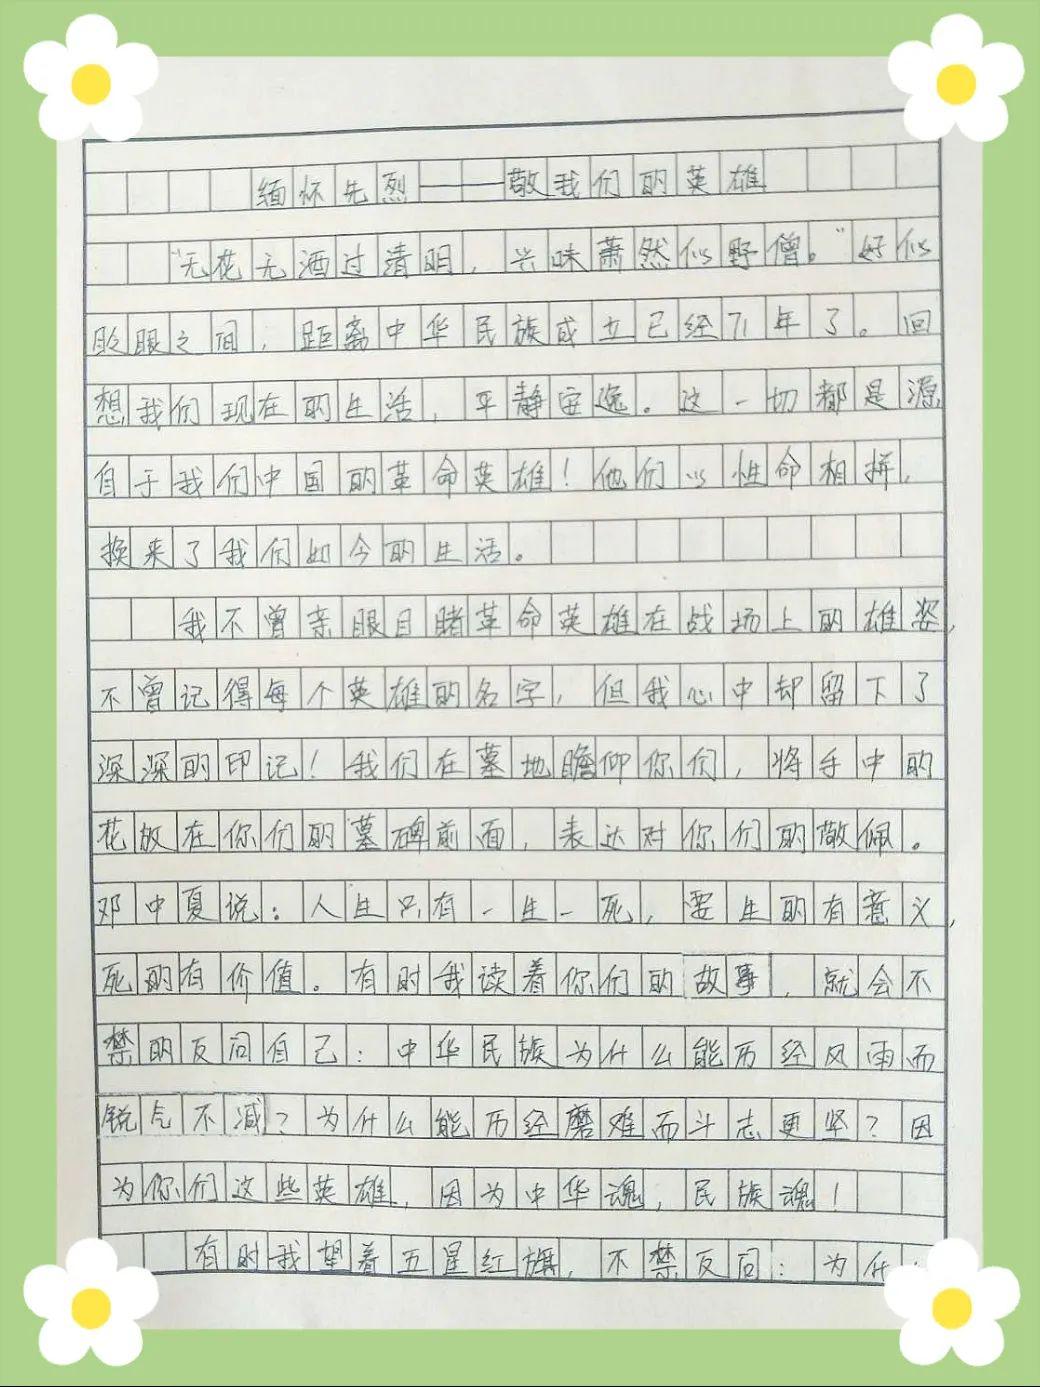 缅怀先烈——敬我们的英雄
“无花无酒过清明，兴味萧然似野僧。”好似
眨眼之间，距离中华民族成立已经71年了。回
想我们现在的生活，平静安逸。这一切都是源
自于我们中国的革命英雄！他们以性命相拼，
换来了我们如今的生活。
我不曾亲眼目睹革命英雄在战场上的雄姿，
不曾记得每个英雄的名字，但我心中却留下了
深深的印记！我们在墓地瞻仰你们，将手中的
花放在你们的墓碑前面，表达对你们的敬佩。
邓中夏说：人生只有一生一死，要生的有意义，
死的有价值。有时我读着你们的故事，就会不
禁的反问自己：中华民族为什么能历经风雨而
锐气不减？为什么能历经磨难而斗志更坚？因
为你们这些英雄，因为中华魂，民族魂！
有时我望着五星红旗，不禁反问：为什